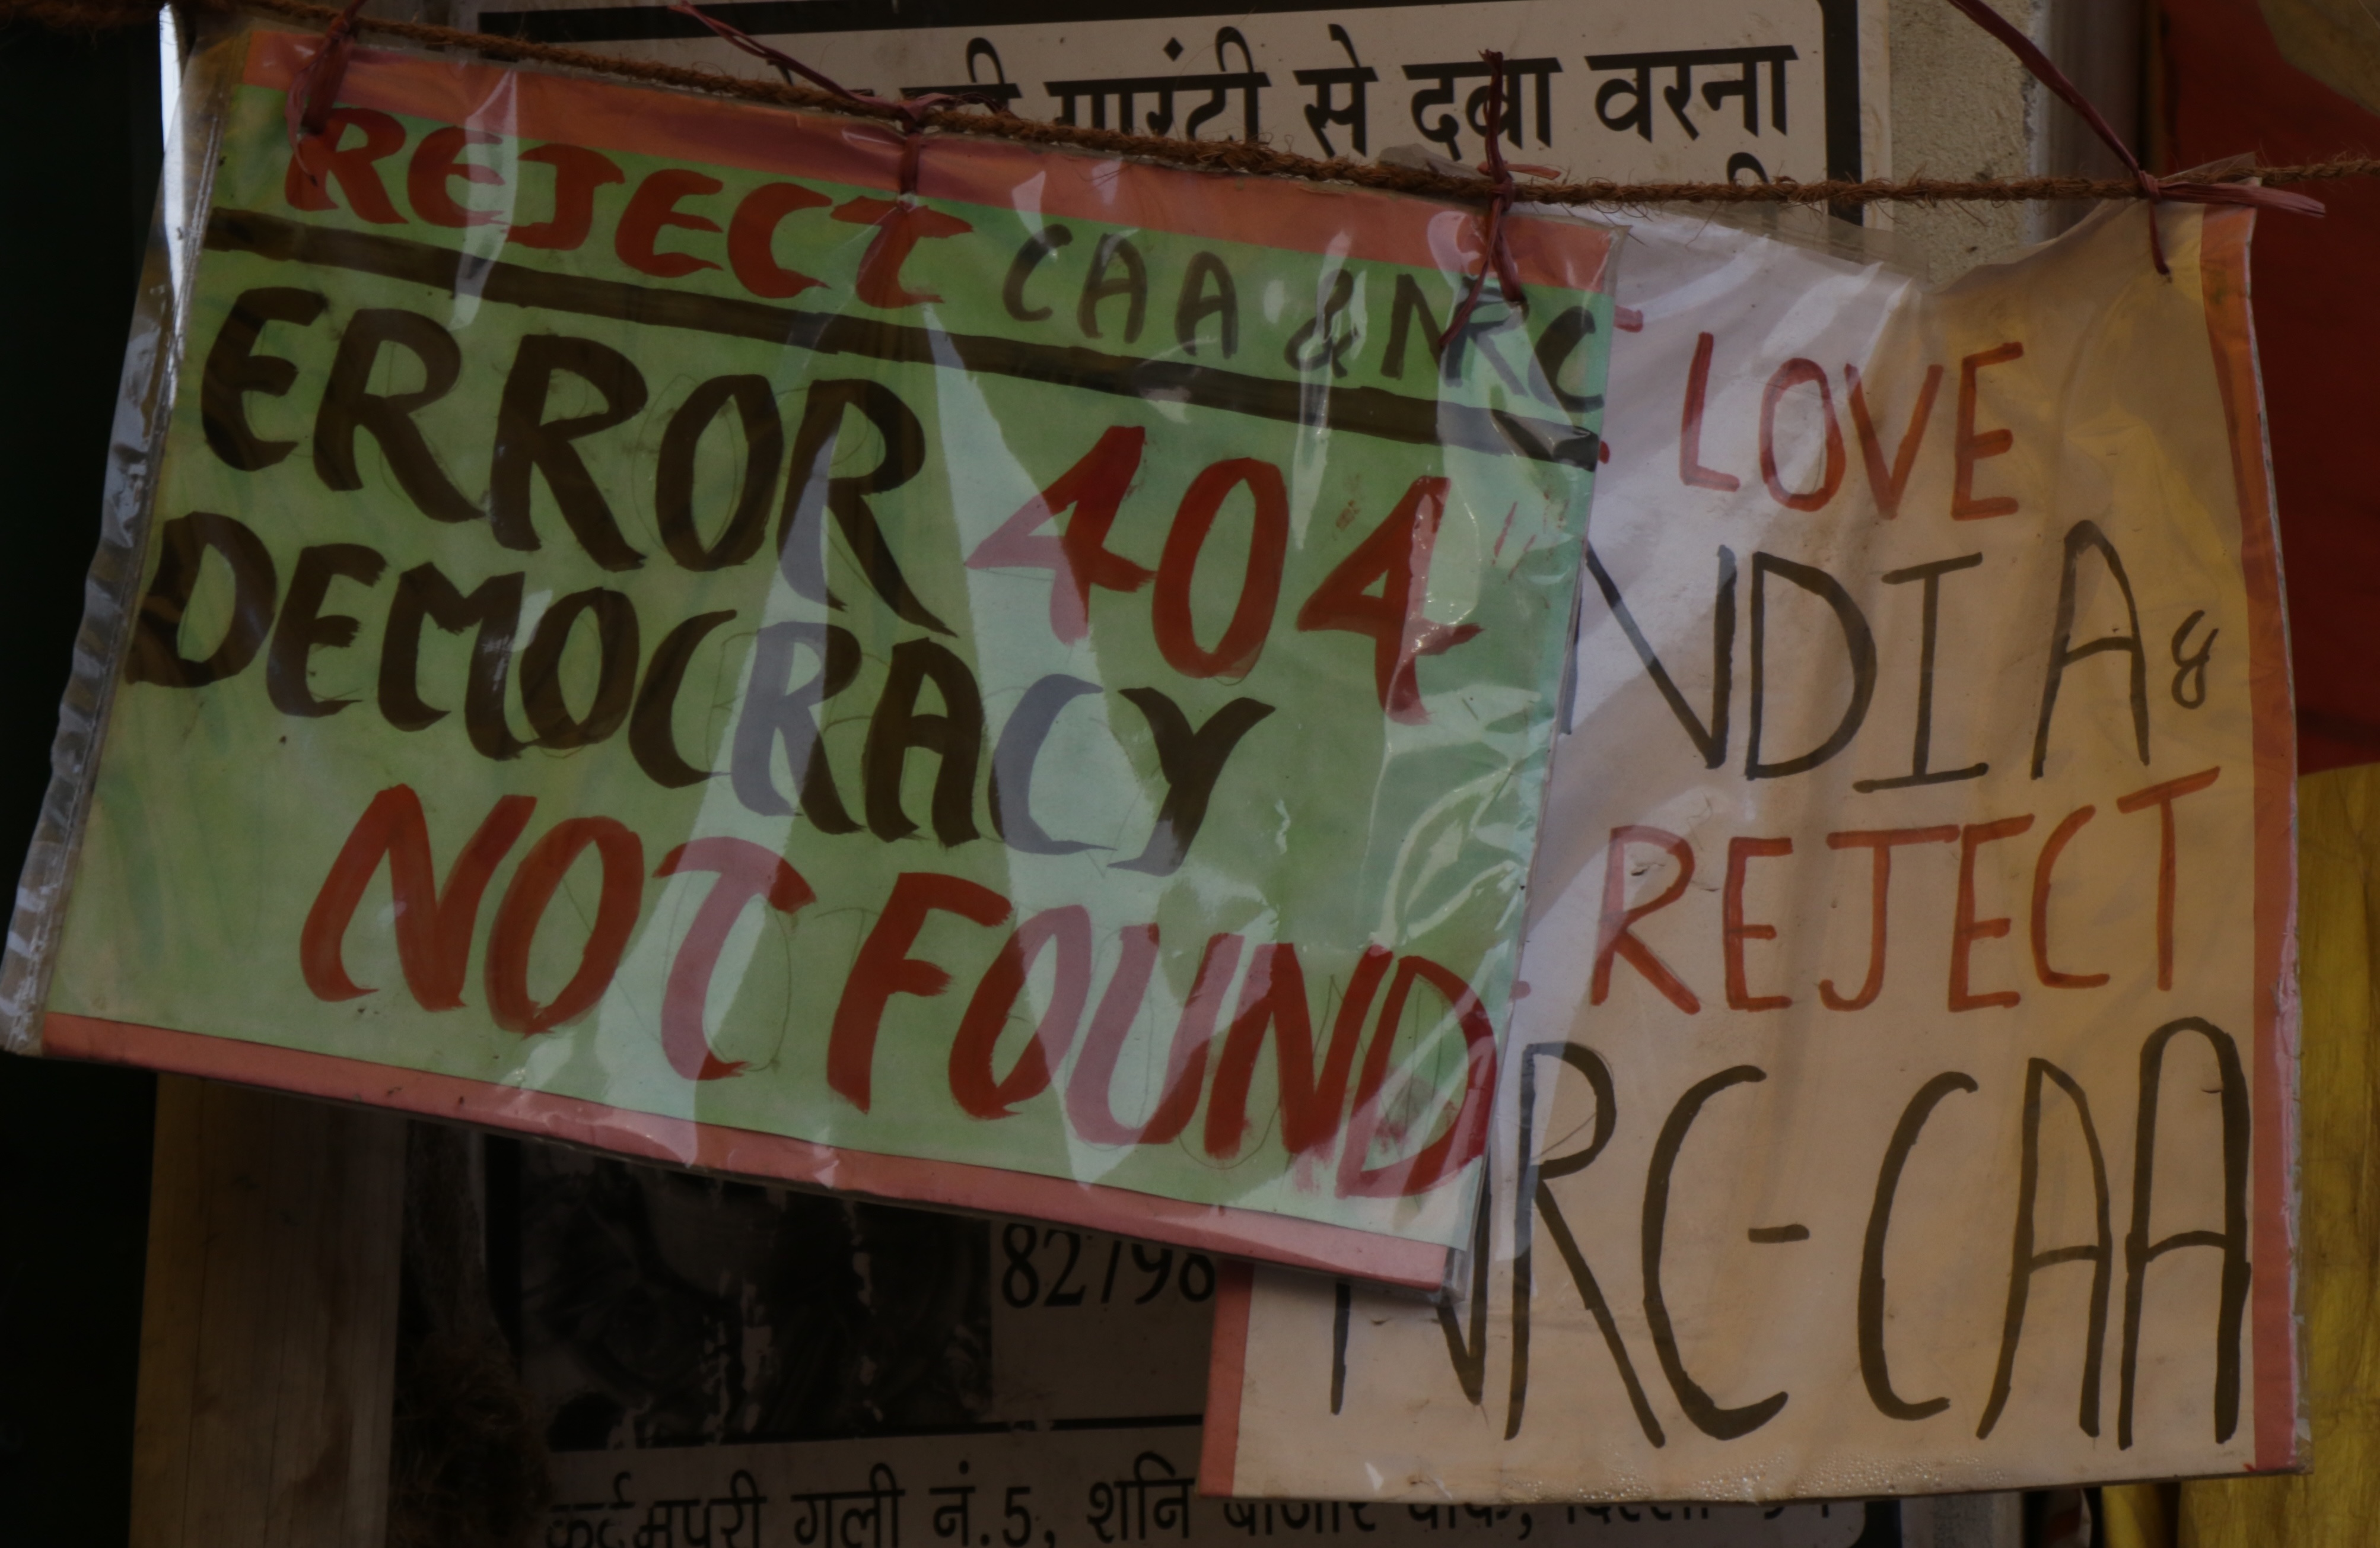 गारंटी से दबा वरना
REJECT CAA & NRC
ERROR 404
DEMOCRACY
NOT FOUND
LOVE
NDIA &
REJECT
NRC-CAA
82798
कर्दमपुरी गली नं.5, शनि बाजार